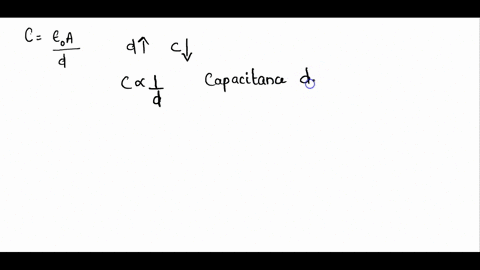 C = ε₀A / d
d↑ C↓
C ∝ 1/d Capacitance d